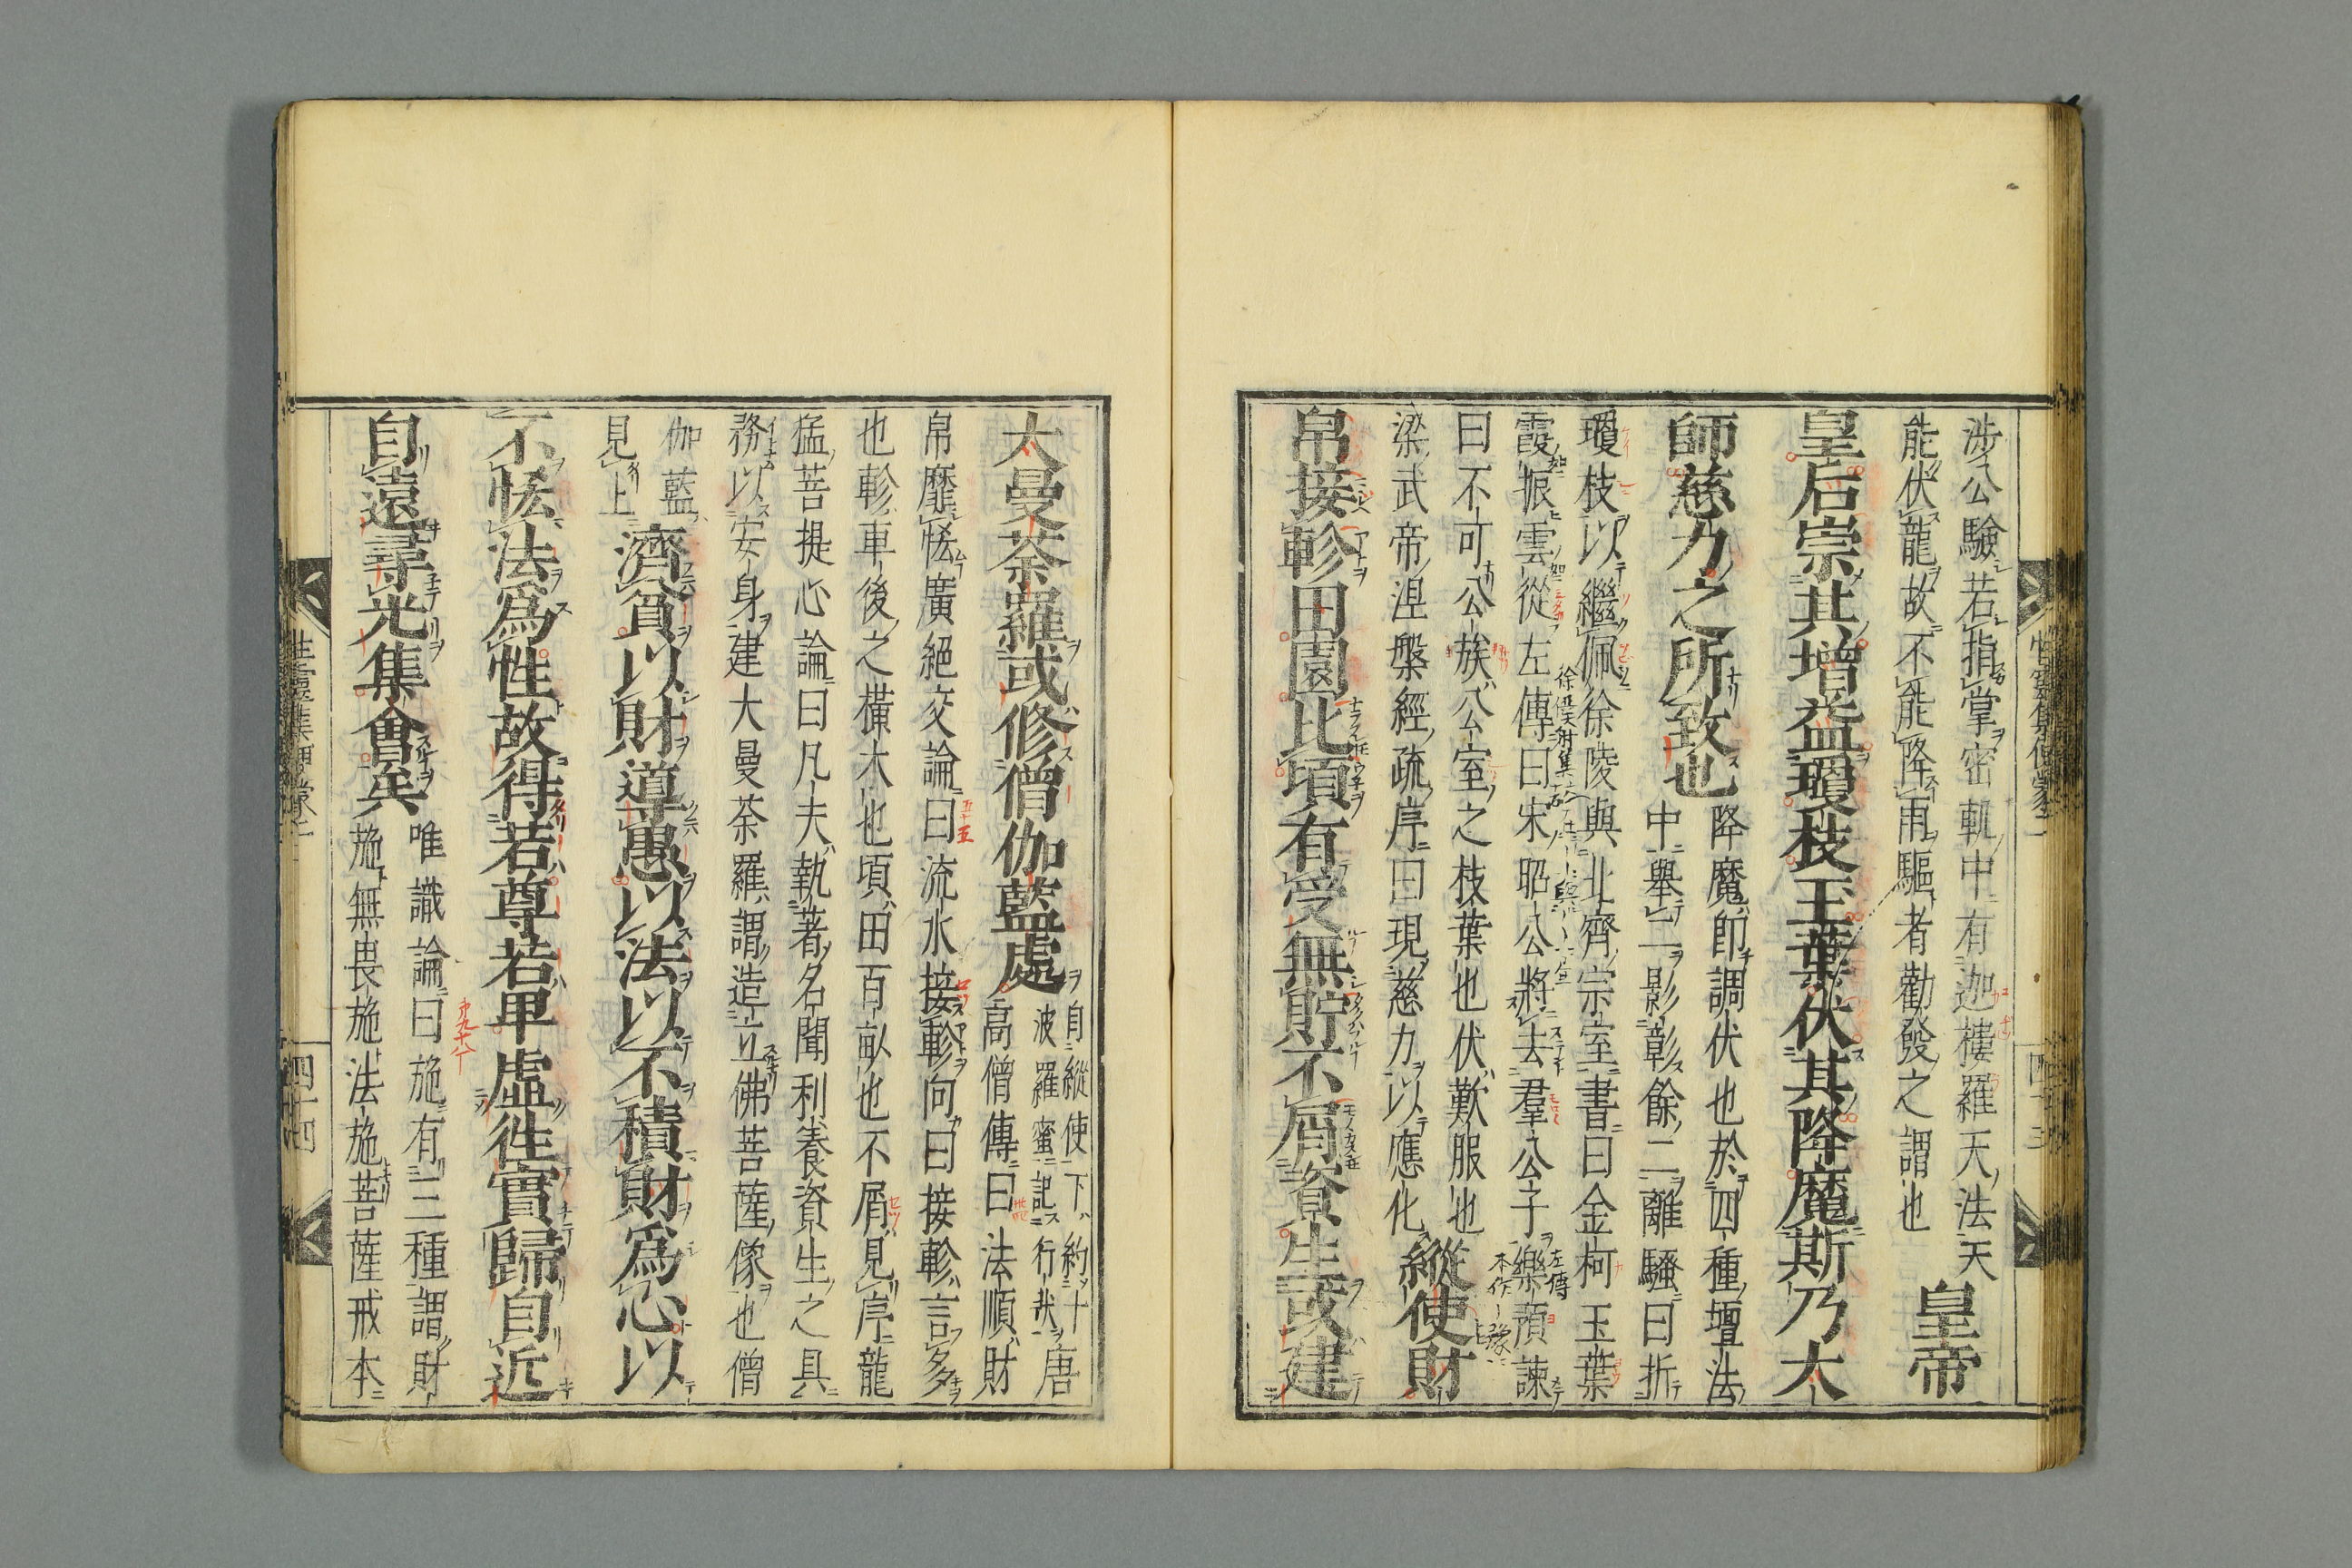 涉公驗若指掌密軌中有迦樓羅天法天
能伏龍故不能降雨驅者勸發之謂也
皇帝
皇后崇其增益瓊枝玉葉伏其降魔斯乃大
師慈力之所致也
降魔即調伏也於四種壇法
中舉一影彰餘二離騷曰折
瓊枝以繼佩徐陵與北齊宗室書曰金柯玉葉
霞振雲從左傳曰宋昭公將去羣公子樂預諫
曰不可公族公室之枝葉也伏歎服也
梁武帝涅槃經疏序曰現慈力以應化
縱使財
帛接軫田園比頃有受無貯不屑資生或建
大曼荼羅或修僧伽藍處
自縱使下約十
波羅蜜記行狀
唐
高僧傳曰法順財
帛靡恡廣絕交論曰流水接軫向曰接軫言多
也軫車後之橫木也頃田百畝也不屑見序龍
猛菩提心論曰凡夫執著名聞利養資生之具
務以安身建大曼荼羅謂造立佛菩薩像也僧
伽藍
見上
濟貧以財導愚以法以不積財為心以
不恡法為性故得若尊若卑虛徃實歸自近
自遠尋光集會矣
唯識論曰施有三種謂財
施無畏施法施菩薩戒本
性靈集便蒙二
四十四